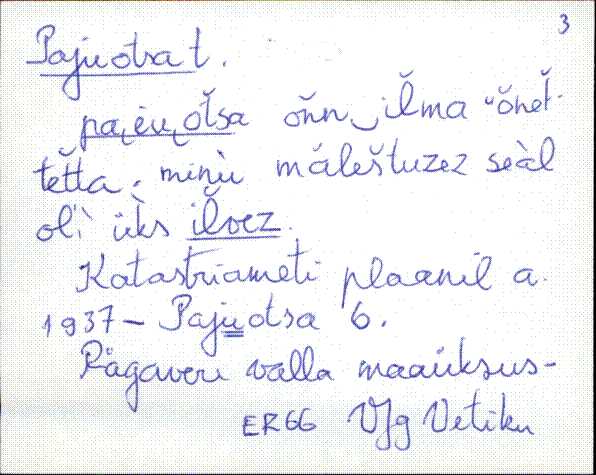 3
Pajuotsa t.
pa̯i̯u̯ òt̆sa oñn‿il̆ma ŏnet̆-
tet̆ta, minù mäleštuzez seàl
oĺì üks il̆vez.
Katastriameti plaanil a.
1937 — Pajuotsa 6.
Rägavere valla maaüksus-
ER66 VJg Vetiku